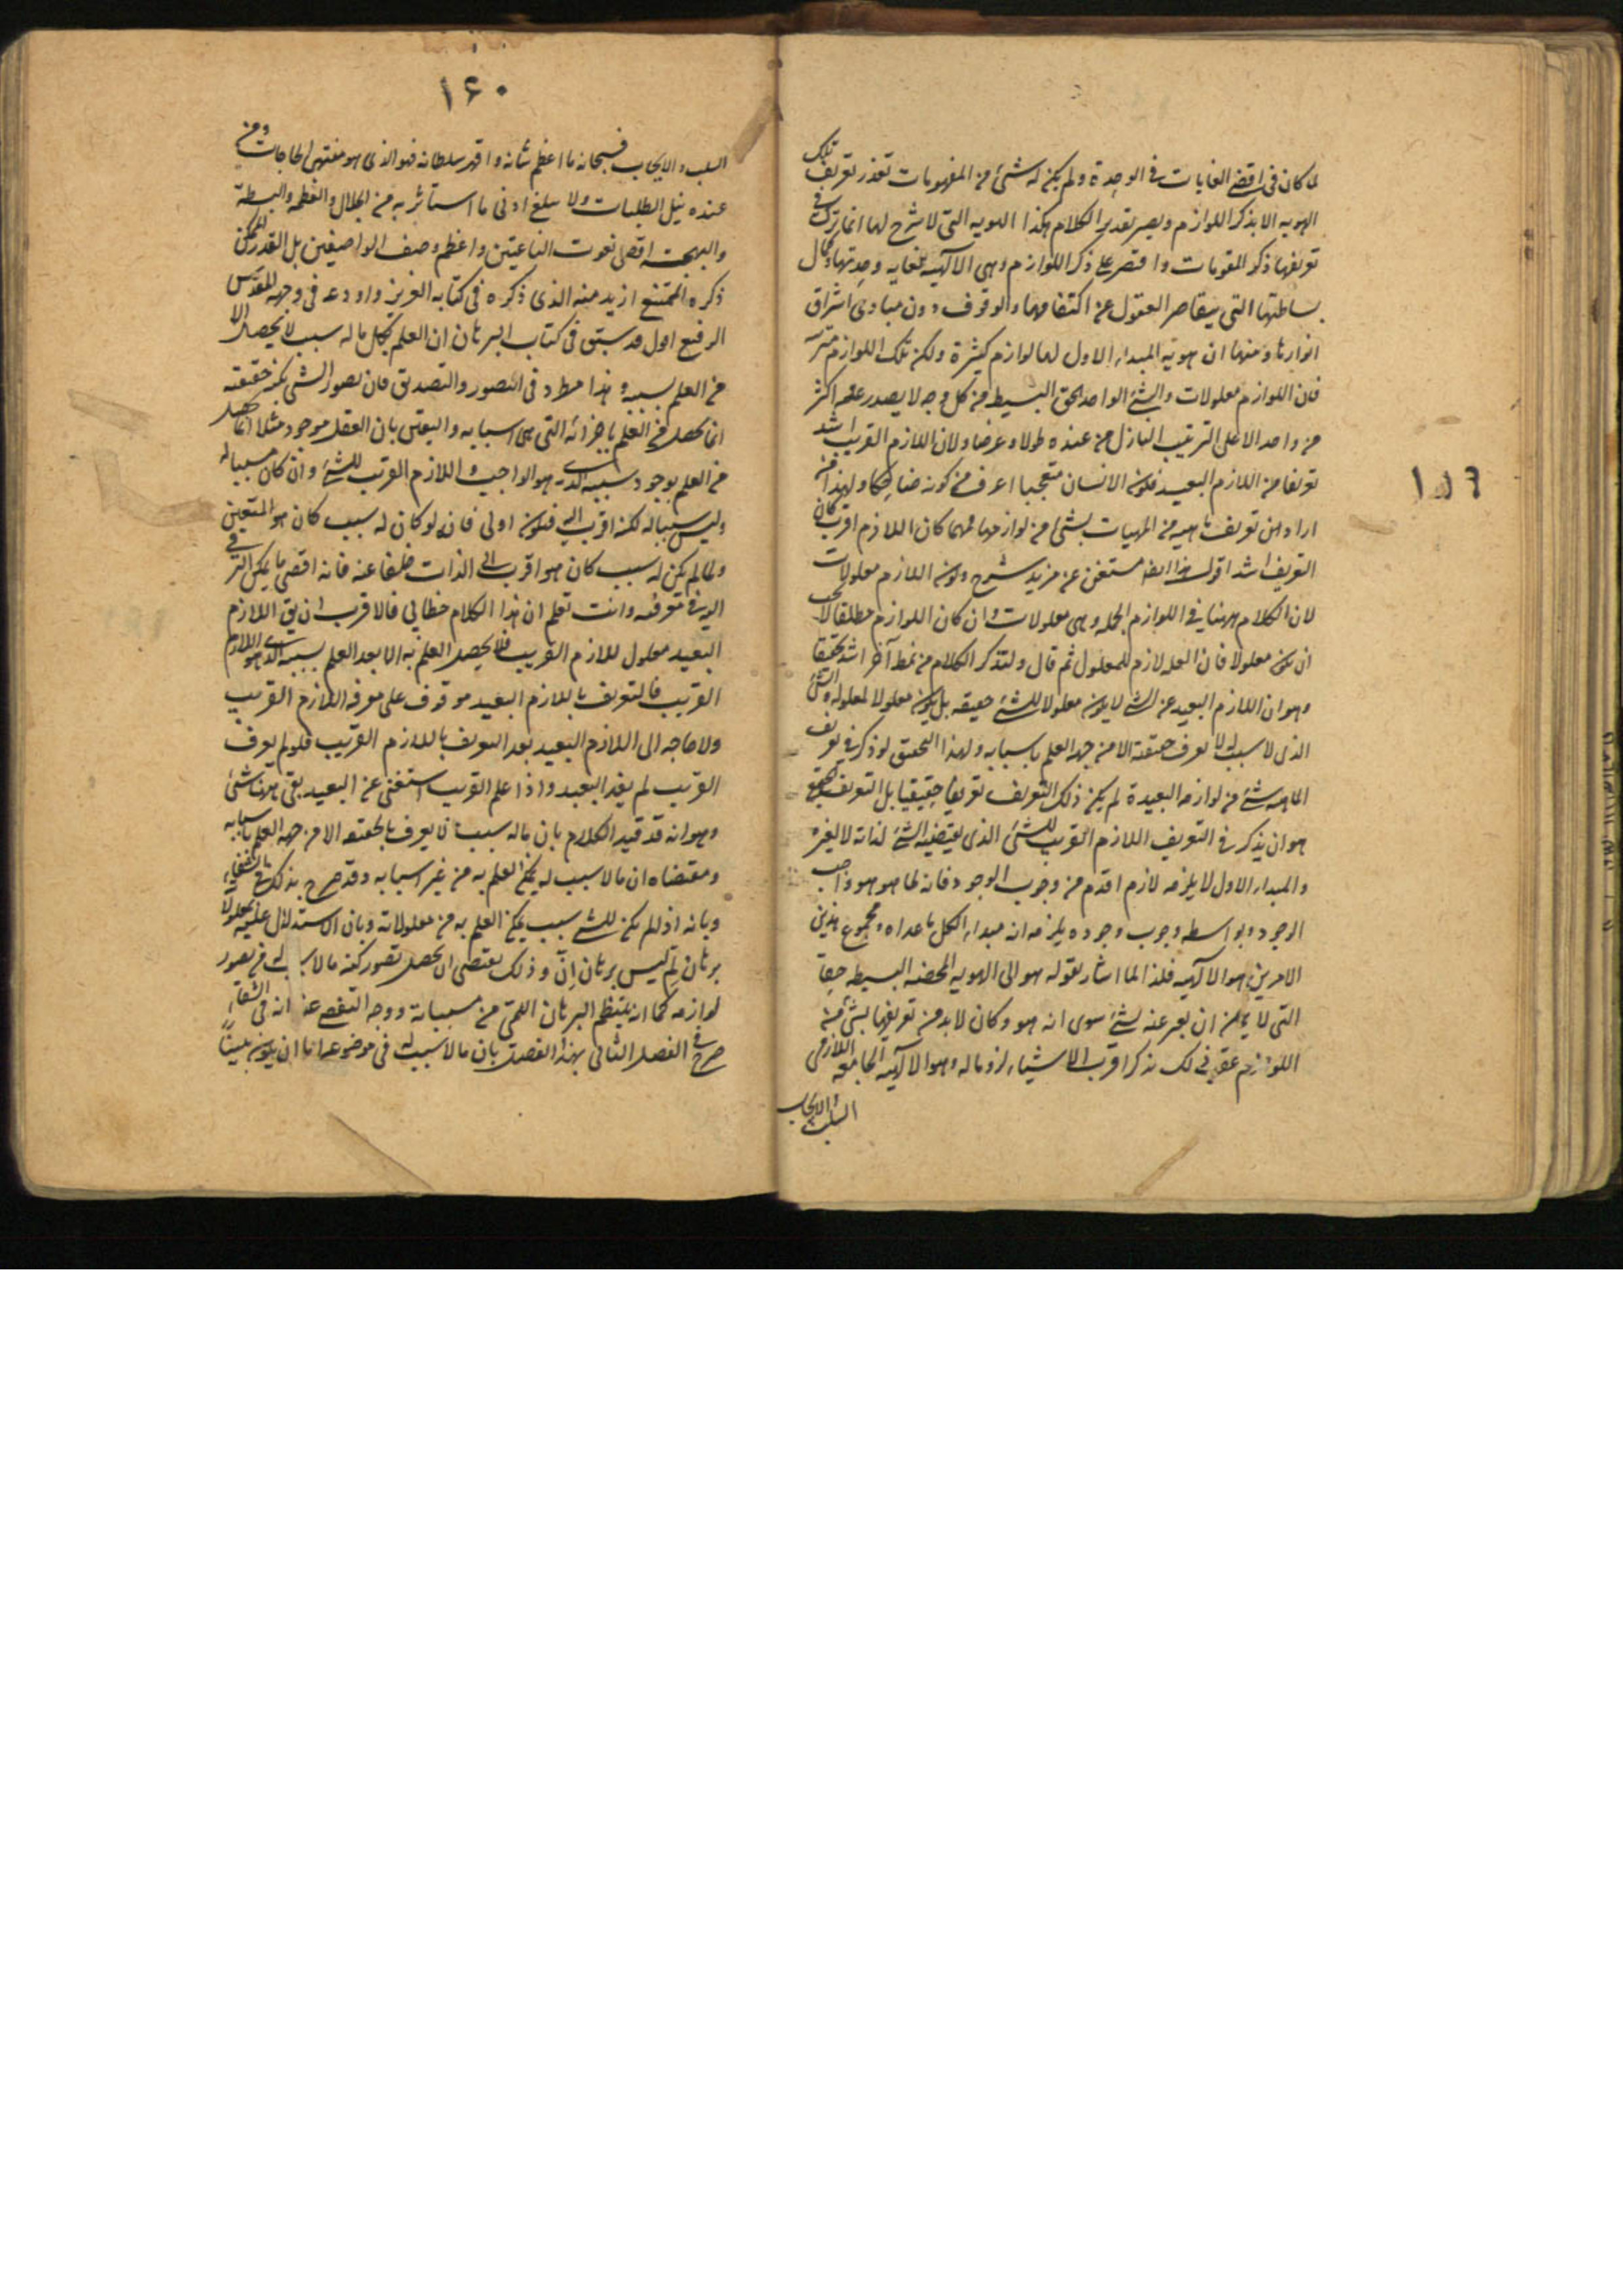 لما كان فى اقصى الغايات فى الوحدة ولم يكن له شئ من المفهومات تعذر تعريف تلك
الهويه الا بذكر اللوازم ويصير تقدير الكلام هكذا الهويه التى لا شرح لها انما ترك فى
تعريفها ذكر المقومات واقتصر على ذكر اللوازم وهى الالهيه لغايه وحدتها وكمال
بساطتها التى يتقاصر العقول عن اكتناهها والوقوف دون مبادى اشراق
انوارها ومنها ان هويه المبداء الاول لها لوازم كثيرة ولكن تلك اللوازم مترتبه
فان اللوازم معلولات والشئ الواحد الحق البسيط من كل وجه لا يصدر عنه اكثر
من واحد الا على الترتيب النازل من عنده طولا وعرضا ولان اللازم القريب اشد
تعريفا من اللازم البعيد فكون الانسان متعجبا اعرف من كونه ضاحكا ولهذا من
اراد من تعريف ماهيه من المهيات بشئ من لوازمها فمهما كان اللازم اقرب كان
التعريف اشد اقول هذا ايضا مستغن عن مزيد شرح وكون اللازم معلولات
لان الكلام ههنا فى اللوازم المحمله وهى معلولات وان كان اللوازم مطلقا لا يجب
ان يكون معلولا فان العله لازم للمعلول ثم قال ولنذكر الكلام من نمط آخر اشد تحقيقا
وهو ان اللازم البعيد عن الشئ لا يكون معلولا للشئ حقيقه بل يكون معلولا لمعلوله والشئ
الذى لا سبب له لا يعرف حقيقة الا من جهه العلم باسبابه ولهذا التحقيق لو ذكر فى تعريف
الماهيه شئ من لوازمه البعيدة لم يكن ذلك التعريف تعريفا حقيقيا بل التعريف الحقيقى
هو ان يذكر فى التعريف اللازم القريب للشئ الذى يقتضيه الشئ لذاته لا لغيره
والمبداء الاول لا يلزمه لازم اقدم من وجوب الوجود فانه لما هو هو واجب
الوجود وبواسطه وجوب وجوده يلزمه انه مبداء لكل ما عداه ومجموع هذين
الامرين هو الالهيه فلذا لما اشار بقوله هو الى الهويه المحضه البسيطه حقا
التى لا يمكن ان يعبر عنه بشئ سوى انه هو وكان لا بد من تعريفها بشئ من
اللوازم عقب ذلك بذكر اقرب الاشياء لزوما له وهو الالهيه الجامعه للازمى
السلب والايجاب
١٥٦
١٤٠
السلب والايجاب فسبحانه ما اعظم شانه واقهر سلطانه فهو الذى هو منتهى الحاجات ومن
عنده نيل الطلبات ولا يبلغ ادنى ما استأثر به من الجلال والعظمه والبسطة
والبهجة اقصى نعوت الناعتين واعظم وصف الواصفين بل القدر الممكن
ذكره الممتنع ازيد منه الذى ذكره فى كتابه العزيز واودعه فى وحيه المقدس
الرفيع اقول قد سبق فى كتاب البرهان ان العلم بكل ما له سبب لا يحصل الا
من العلم بسببه وهذا مطرد فى التصور والتصديق فان تصور الشئ بكنه حقيقته
انما يحصل من العلم باجزائه التى هى اسبابه واليقين بان العقل موجود مثلا انما يحصل
من العلم بوجود سببه الذى هو الواجب واللازم القريب للشئ وان كان مسببا له
وليس سببا له لكنه اقرب اليه فيكون اولى فانه لو كان له سبب كان هو المتعين
ولما لم يكن له سبب كان هو اقرب الى الذات خلفا عنه فانه اقصى ما يمكن الترقى
اليه فى معرفته وانت تعلم ان هذا الكلام خطابي فالاقرب ان يق اللازم
البعيد معلول للازم القريب فلا يحصل العلم به الا بعد العلم بسببه الذى هو اللازم
القريب فالتعريف باللازم البعيد موقوف على معرفه اللازم القريب
ولا حاجه الى اللازم البعيد بعد التعريف باللازم القريب فلو لم يعرف
القريب لم يفد البعيد واذا علم القريب استغنى عن البعيد بقى ههنا شئ
وهو انه قد قيد الكلام بان ماله سبب لا يعرف بالحقيقه الا من جهه العلم باسبابه
ومقتضاه ان مالا سبب له يمكن العلم به من غير اسبابه وقد صرح بذلك فى الشفاء
وبانه اذا لم يكن للشئ سبب يمكن العلم به من معلولاته وبان الاستدلال عليه بمعلوله
برهان لم ليس برهان ان وذلك يقتضى ان يحصل تصور كنه مالا سبب له من تصور
لوازمه كما انه ينتظم البرهان اللمى من مسبباته ووجه التفصى عنه انه فى الشفاء
صرح فى الفصل الثانى بهذا الفصل بان مالا سبب له فى موضوعه اما ان يكون بينا